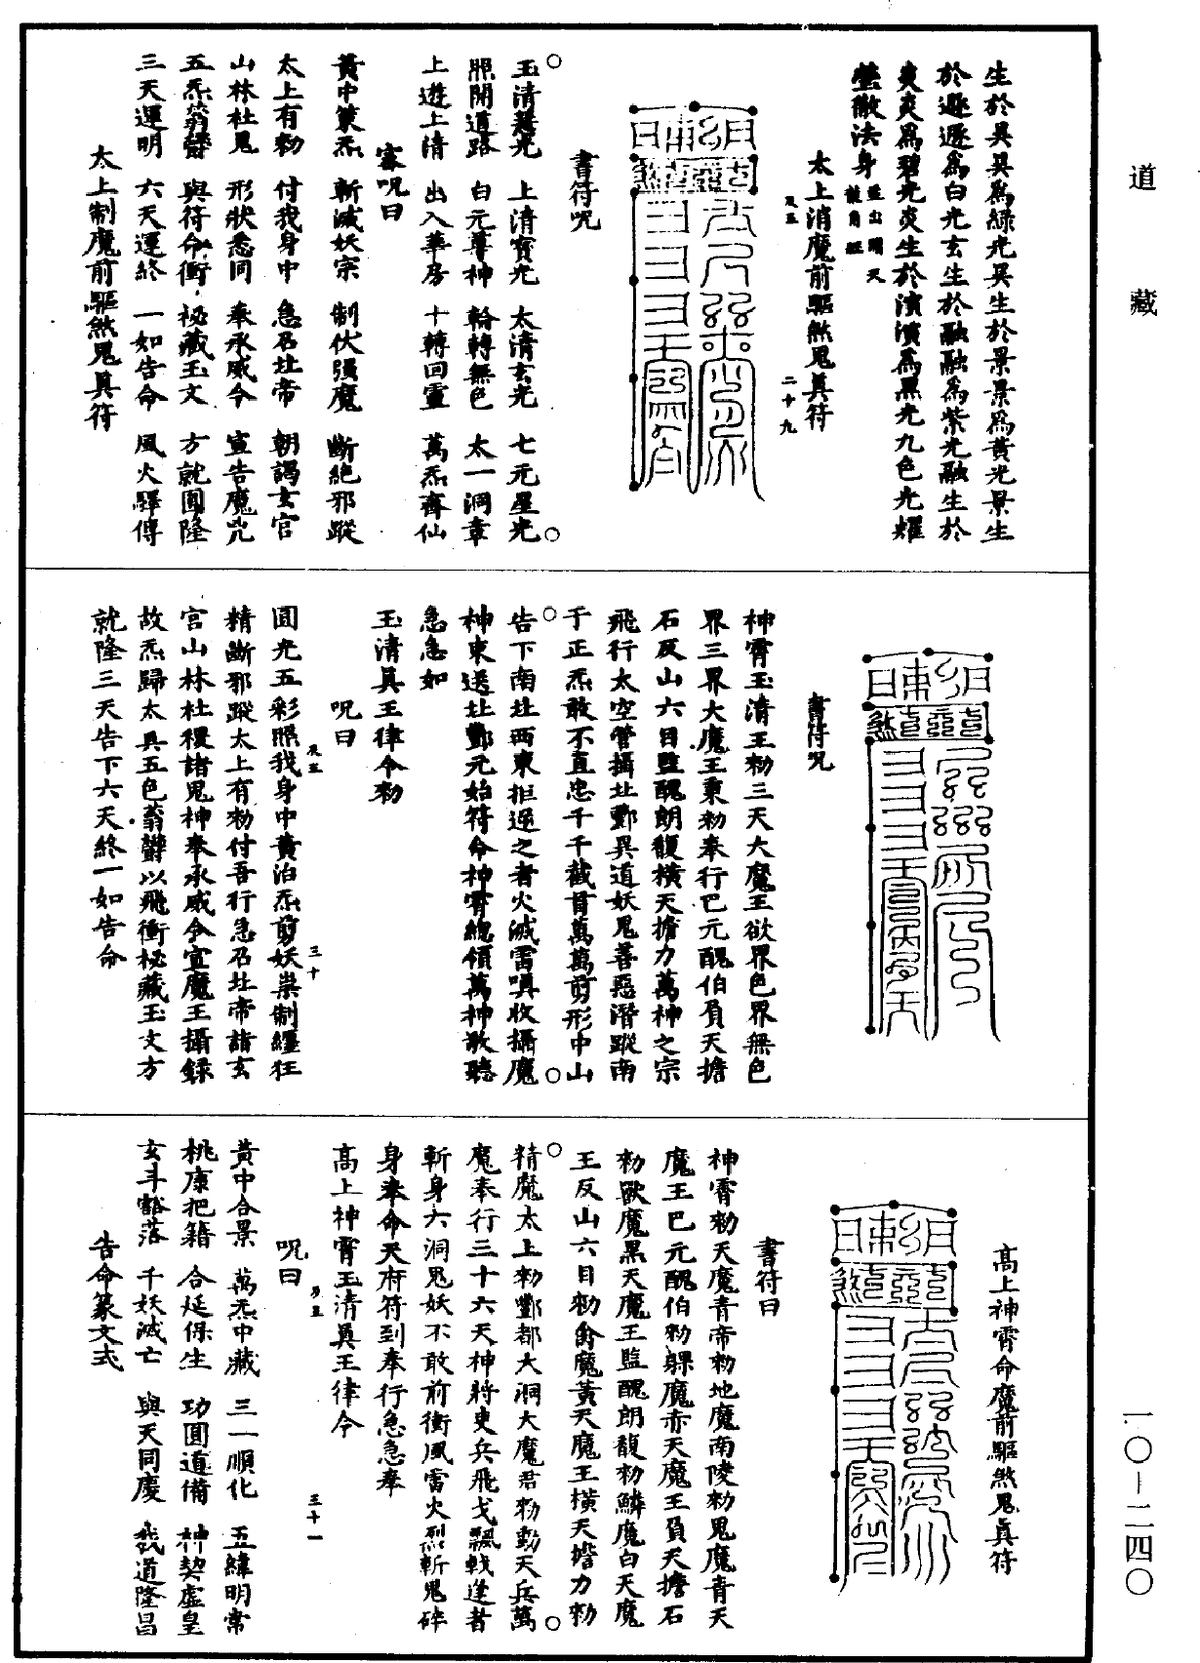 道藏
生於昊昊為綠光昊生於景景為黃光景生
於遯遯為白光玄生於融融為紫光融生於
炎炎為碧光炎生於演演為黑光九色光耀
瑩徹法身
太上消魔前驅煞鬼真符
二十九
書符呪
玉清慧光　上清寶光　太清玄光　七元星光
照開道路　白元尊神　輪轉無色　太一洞章
上遊上清　出入華房　十轉回靈　萬炁齊仙
密呪曰
黃中策炁　斬滅妖宗　制伏強魔　斷絕邪蹤
太上有勑　付我身中　急召北帝　朝謁玄官
山林杜鬼　形狀悉同　奉承威令　宣告魔兇
五炁蓊鬱　與符命衝　祕藏玉文　方就圓隆
三天運明　六天運終　一如告命　風火驛傳
太上制魔前驅煞鬼真符
書符呪
神霄玉清王勑三天大魔王欲界色界無色
界三界大魔王秉勑奉行巴元醜伯負天擔
石反山六目監醜朗馥橫天擔力萬神之宗
飛行太空管攝北酆異道妖鬼善惡潛蹤南
于正炁敢不直忠千千截首萬萬剪形中山
告下南北西東拒逆之者火滅雷嗔收攝魔
神束送北酆元始符命神霄總領萬神敢聽
急急如
玉清真王律令勑
呪曰
三十
圓光五彩照我身中黃泊炁剪妖祟制殭狂
精斷邪蹤太上有勑付吾行急召北帝詣玄
宮山林杜稷諸鬼神奉承威令宣魔王攝錄
故炁歸太真五色蓊鬱以飛衝祕藏玉文方
就隆三天告下六天終一如告命
高上神霄命魔前驅煞鬼真符
書符曰
神霄勑天魔青帝勑地魔南陵勑鬼魔青天
魔王巴元醜伯勑躶魔赤天魔王負天擔石
勑歐魔黑天魔王監醜朗馥勑鱗魔白天魔
王反山六目勑禽魔黃天魔王橫天擔力勑
精魔太上勑酆都大洞大魔君勑勒天兵萬
魔奉行三十六天神將吏兵飛戈飄戟逢者
斬身六洞鬼妖不敢前衝風雷火烈斬鬼碎
身奉命天府符到奉行急急奉
高上神霄玉清真王律令
呪曰
三十一
黃中合景　萬炁中藏　三一順化　五緯明常
桃康把籍　合延保生　功圓道備　神契虛皇
玄斗豁落　千妖滅亡　與天同慶　我道隆昌
告命篆文式
一〇－二四〇